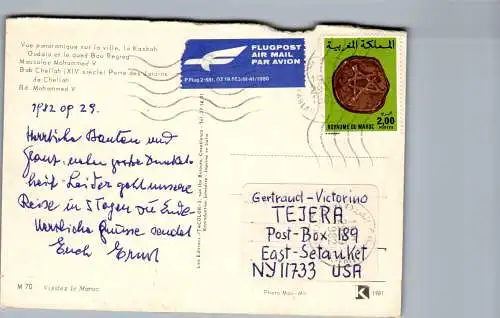 Vue panoramique sur la ville, la Kasbah
Oudaïa et le oued Bou Regreg
Mausolée Mohammed V
Bab Chellah (XIV siècle) Porte des jardins
de Chellah
Bd. Mohammed V
FLUGPOST
AIR MAIL
PAR AVION
المملكة المغربية
2,00
ROYAUME DU MAROC
POSTES
1982
29.
Herrliche Bauten und
große Dunkel
heiß. Leider geht unsere
Reise in 5 Tagen zu Ende
Herzliche Grüsse sendet
Euch Ernst
Gertraud-Victorino
TEJERA
Post-Box 189
East-Setauket
NY 11733 USA
M 70 Visitez le Maroc
K 1981